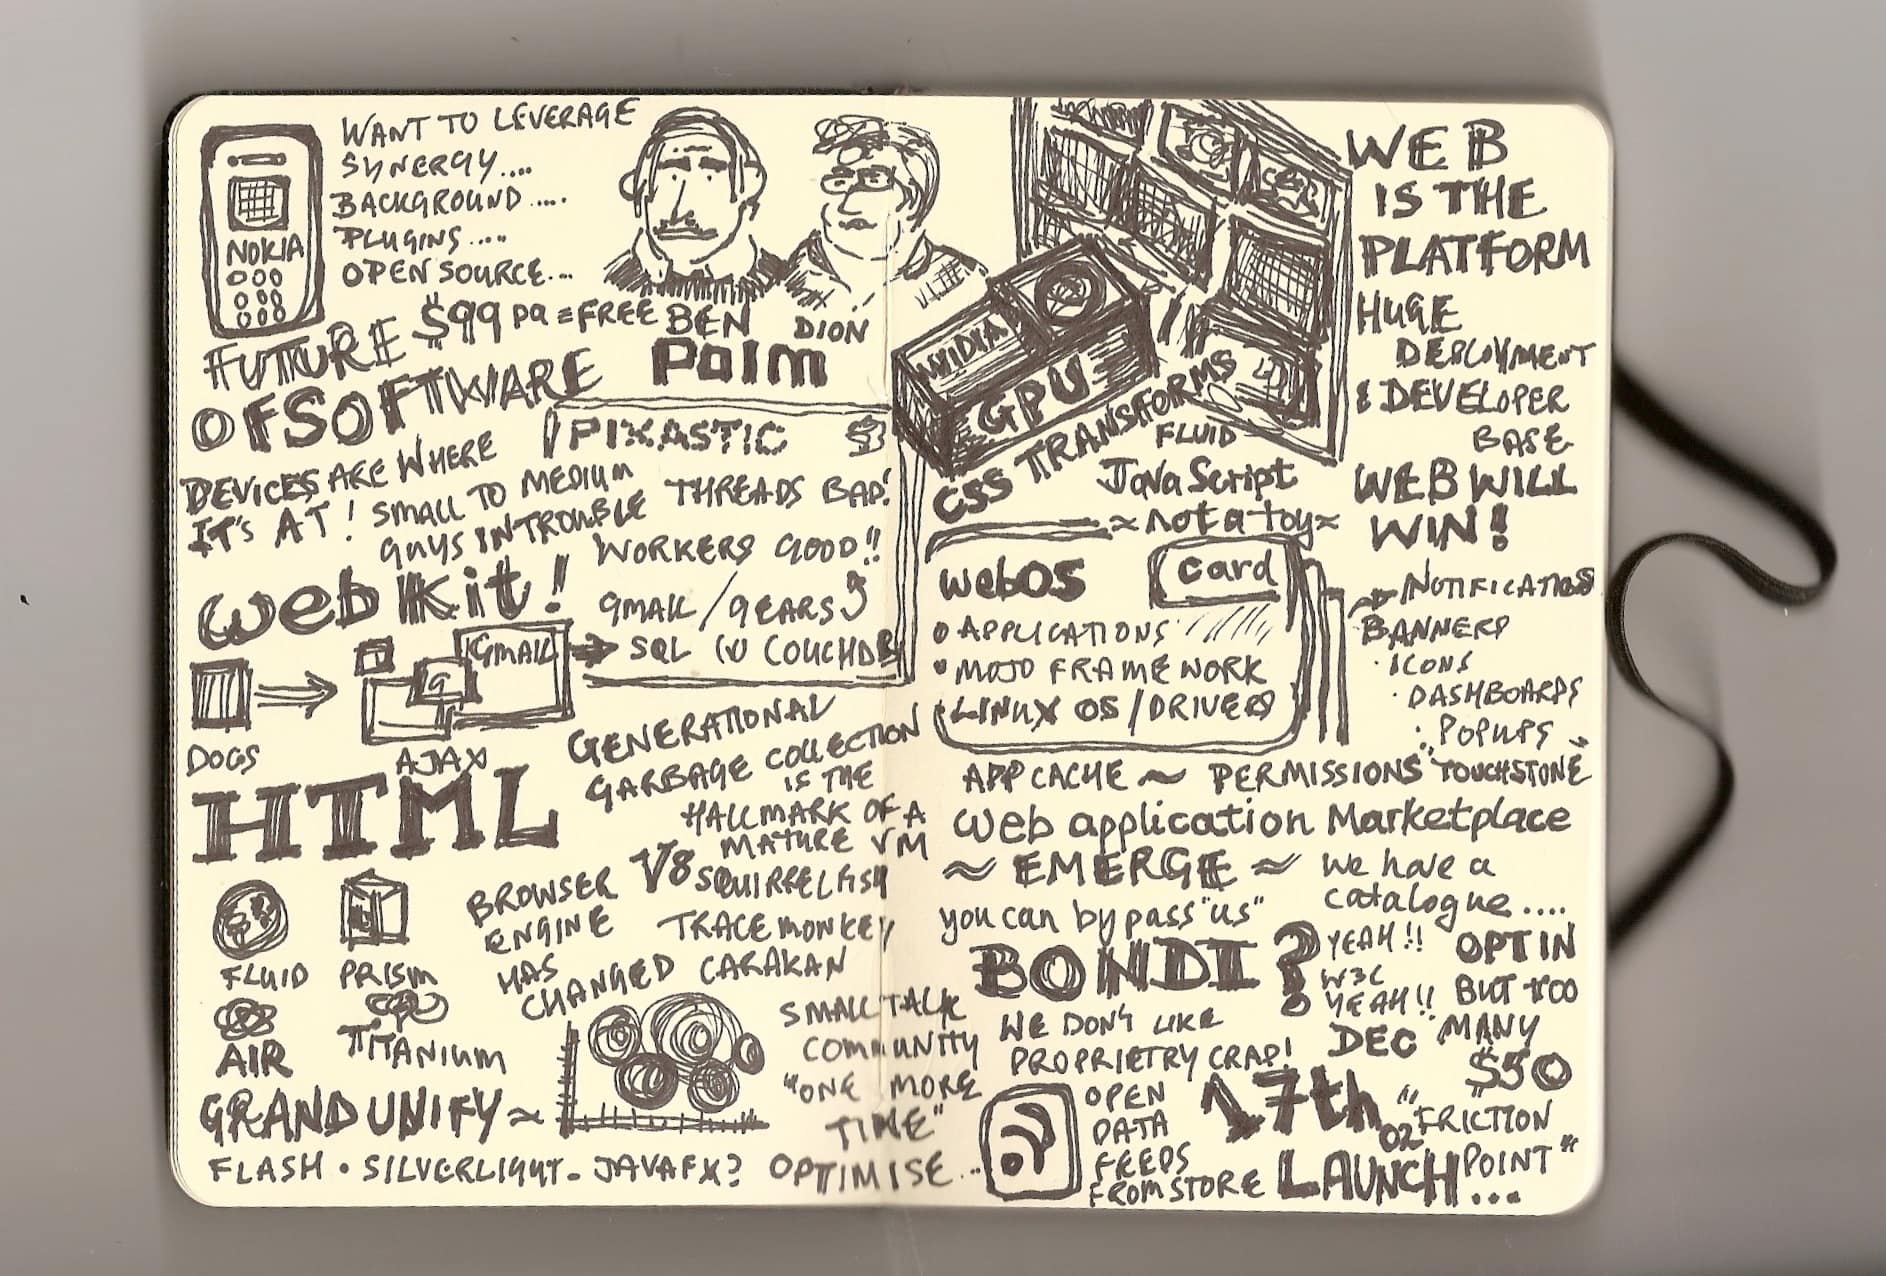 WANT TO LEVERAGE
SYNERGY....
BACKGROUND.....
PLUGINS.....
OPEN SOURCE...
NOKIA
$99 pa = FREE
BEN
DION
Palm
FUTURE
OF SOFTWARE
DEVICES ARE WHERE
IT'S AT!
SMALL TO MEDIUM
GUYS IN TROUBLE
webkit!
PIXASTIC
THREADS BAD!
WORKERS GOOD!!
GMAIL/GEARS
SQL COUCHDB
GMAIL
9
DOGS
AJAX
HTML
GENERATIONAL
GARBAGE COLLECTION
IS THE
HALLMARK OF A
MATURE VM
BROWSER
ENGINE
HAS
CHANGED
V8
SQUIRRELFISH
TRACEMONKEY
CARAKAN
FLUID
PRISM
AIR
TITANIUM
GRAND UNIFY ~
SMALLTALK
COMMUNITY
"ONE MORE
TIME"
FLASH. SILVERLIGHT. JAVAFX?
OPTIMISE...
NVIDIA
GPU
CSS TRANSFORMS
FLUID
JavaScript
≈ not a toy ≈
WEB
IS THE
PLATFORM
HUGE
DEPLOYMENT
& DEVELOPER
BASE
WEB WILL
WIN!
webOS
card
• APPLICATIONS
• MOJO FRAMEWORK
• LINUX OS/DRIVERS
NOTIFICATIONS
BANNERS
· ICONS
· DASHBOARDS
· POPUPS
APP CACHE ~ PERMISSIONS "TOUCHSTONE"
Web application Marketplace
≈ EMERGE ≈
we have a
catalogue....
you can bypass "us"
BONDI?
YEAH!!
W3C
YEAH!!
OPT IN
BUT TOO
MANY
WE DON'T LIKE
PROPRIETRY CRAP!
DEC
17th
$50
OPEN
DATA
FEEDS
FROM STORE
O2
LAUNCH
"FRICTION
POINT"
...